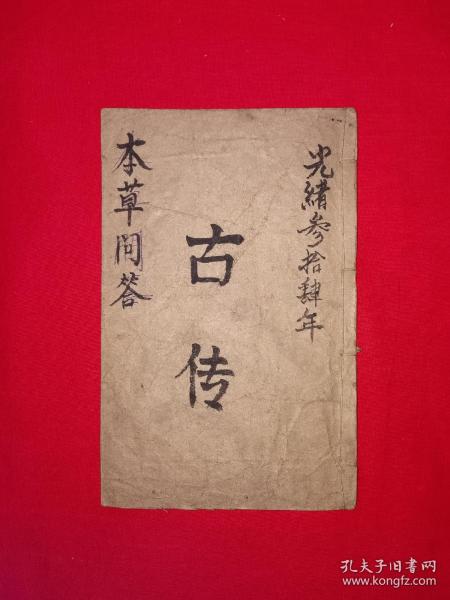 光緒参拾肆年
古传
本草問答
孔夫子旧书网
www.kongfz.com